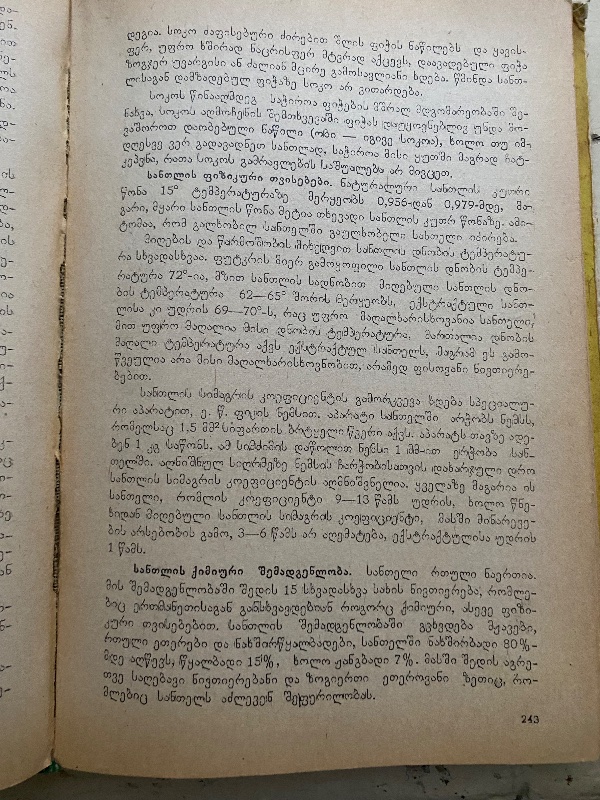 დეგია. სოკო ძაფისებური ძირებით შლის ფიჭის ნაწილებს და ყავის-
ფერ, უფრო ხშირად ნაცრისფერ მტვრად აქცევს, დაავადებული ფიჭა
ზოგჯერ უვარგისი ან ძალიან მცირე გამოსავლიანი ხდება. წმინდა სანთ-
ლისაგან დამზადებულ ფიჭაზე სოკო არ ვითარდება.
სოკოს წინააღმდეგ საჭიროა ფიჭების მშრალ მდგომარეობაში შე-
ნახვა. სოკოს აღმოჩენის შემთხვევაში ფიჭას დაუყოვნებლივ უნდა მო-
ვაშოროთ დაობებული ნაწილი (ობი — იგივე სოკოა), ხოლო თუ იმ-
დღესვე ვერ გადავადნეთ სანთლად, საჭიროა მისი ყუთში მაგრად ჩატ-
კეპვნა, რათა სოკოს გამრავლების საშუალება არ მივცეთ.
სანთლის ფიზიკური თვისებები. ნატურალური სანთლის კუთრი
წონა 15° ტემპერატურაზე მერყეობს 0,956-დან 0,979-მდე, მა-
გარი, მყარი სანთლის წონა მეტია თხევადი სანთლის კუთრ წონაზე. ამი-
ტომაა, რომ გალხობილ სანთელში გაულხობელი სანთელი იძირება.
მიღების და წარმოშობის მიხედვით სანთლის დნობის ტემპერატუ-
რა სხვადასხვაა. ფუტკრის მიერ გამოყოფილი სანთლის დნობის ტემპე-
რატურა 72°-ია, მზით სანთლის სადნობით მიღებული სანთლის დნო-
ბის ტემპერატურა 62—65° შორის მერყეობს, ექსტრაქტული სანთ-
ლისა კი უდრის 69—70°-ს, რაც უფრო მაღალხარისხოვანია სანთელი,
მით უფრო მაღალია მისი დნობის ტემპერატურა, მართალია დნობის
მაღალი ტემპერატურა აქვს ექსტრაქტულ სანთელს, მაგრამ ეს გამო-
წვეულია არა მისი მაღალხარისხოვნობით, არამედ ფისოვანი ნივთიერე-
ბებით.
სანთლის სიმაგრის კოეფიციენტის გამორკვევა ხდება სპეციალუ-
რი აპარატით, ე. წ. ფიკის ნემსით. აპარატი სანთელში არჭობს ნემსს,
რომელსაც 1,5 მმ² სიფართის ბრტყელი წვერი აქვს. აპარატს თავზე ადე-
ბენ 1 კგ საწონს. ამ სიმძიმის დაწოლით ნემსი 1 მმ-ით ერჭობა სან-
თელში. აღნიშნულ სიღრმეზე ნემსის ჩარჭობისათვის დახარჯული დრო
სანთლის სიმაგრის კოეფიციენტის აღმნიშვნელია. ყველაზე მაგარია ის
სანთელი, რომლის კოეფიციენტი 9—13 წამს უდრის, ხოლო წნე-
ხიდან მიღებული სანთლის სიმაგრის კოეფიციენტი, მასში მინარევე-
ბის არსებობის გამო, 3—6 წამს არ აღემატება, ექსტრაქტულისა უდრის
1 წამს.
სანთლის ქიმიური შემადგენლობა. სანთელი რთული ნაერთია.
მის შემადგენლობაში შედის 15 სხვადასხვა სახის ნივთიერება, რომლე-
ბიც ერთმანეთისაგან განსხვავდებიან როგორც ქიმიური, ასევე ფიზი-
კური თვისებებით. სანთლის შემადგენლობაში გვხვდება მჟავები,
რთული ეთერები და ნახშირწყალბადები, სანთელში ნახშირბადი 80%-
მდე აღწევს, წყალბადი 15%, ხოლო ჟანგბადი 7%. მასში შედის აგრე-
თვე საღებავი ნივთიერებანი და ზოგიერთი ეთეროვანი ზეთიც, რო-
მლებიც სანთელს აძლევენ შეფერილობას.
243